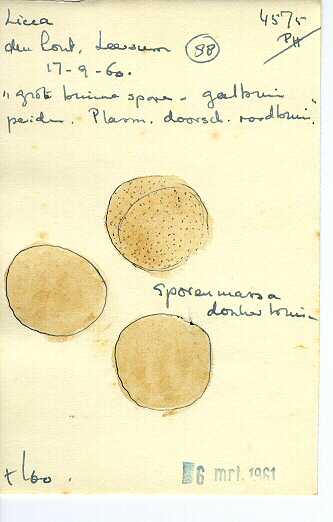 Licea 4575
den hout. Leersum 88 PH
17-9-60.
"grote bruine spore - geelbruin
perid. Plasm. doorsch. roodbruin."
Sporenmassa
donkerbruin
x 160.
6 mrt. 1961